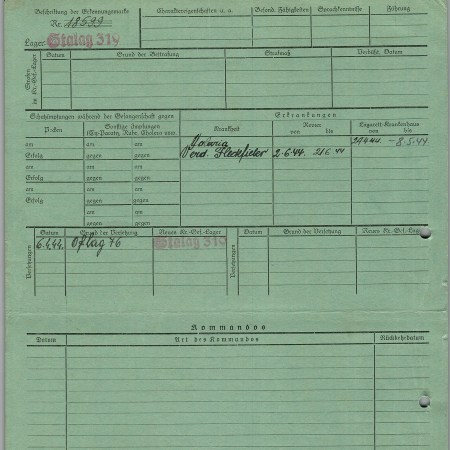 Beschriftung der Erkennungsmarke Charaktereigenschaften u. a. Besond. Fähigkeiten Sprachkenntnisse Führung
Nr. 18599
Lager: Stalag 319
Strafen im Kr.-Gef.-Lager Datum Grund der Bestrafung Strafmaß Verbüßt, Datum
Schutzimpfungen während der Gefangenschaft gegen Erkrankungen
Pocken Sonstige Impfungen (Ty.-Paraty., Ruhr, Cholera usw.) Krankheit Revier von bis Lazarett-Krankenhaus von bis
am am am Malaria 27.4.44 - 8.5.44
Erfolg gegen gegen Verd. Fleckfieber 2-6.44. 21.6.44
am am am
Erfolg gegen gegen
am am am
Erfolg gegen gegen
am am
gegen gegen
Versetzungen Datum Grund der Versetzung Neues Kr.-Gef.-Lager Versetzungen Datum Grund der Versetzung Neues Kr.-Gef.-Lager
6.4.44. Oflag 76 Stalag 319
Kommandos
Datum Art des Kommandos Rückkehrdatum